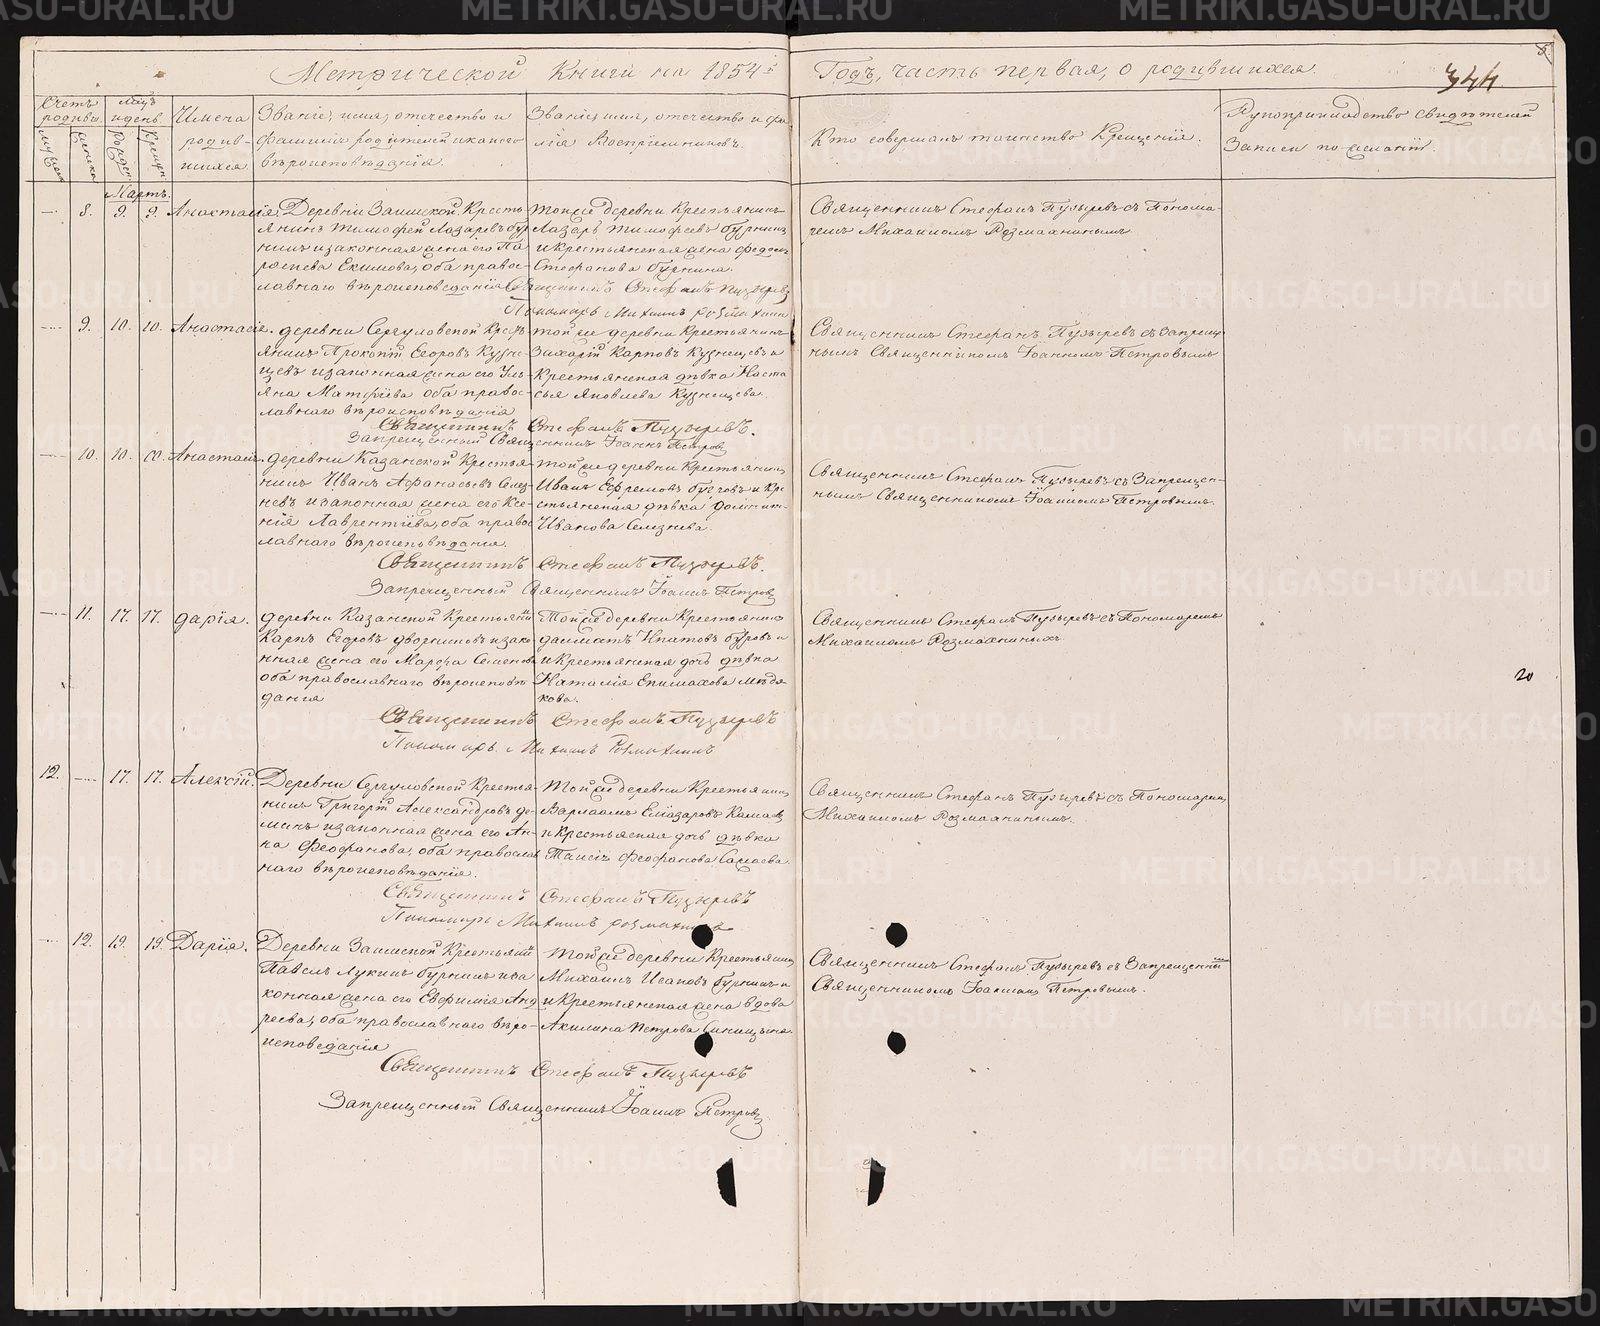 Метрической Книги на 1854й Годъ, часть первая, о родившихся.
344
Счетъ родивш.
Мцъ и день.
Имена родив-
шихся.
Званіе, имя, отечество и
фамилія родителей и какого
вѣроисповѣданія.
Званіе, имя, отчество и фа-
милія Воспріемниковъ.
Кто совершалъ таинство Крещенія.
Рукоприкладство свидѣтелей
Записи по желанію.
Мартъ.
8. 9. 9. Анастасія.
Деревни Заимской Кресть-
янинъ Тимофей Лазаревъ Бур-
нинъ и законная жена его Па-
Екимова, оба право-
славнаго вѣроисповѣданія
Тойже деревни Крестьянинъ
Лазарь Тимофеевъ Бурнинъ
и крестьянская жена
Стефанова Бурнина.
Священникъ Стефанъ Пузыревъ
Пономарь Михаилъ Розмахнинъ
Священникъ Стефанъ Пузыревъ съ Понома-
ремъ Михаиломъ Розмахнинымъ
9. 10. 10. Анастасія.
деревни Сергуловской Кресть-
янинъ Прокопій Егоровъ Кузне-
цевъ и законная жена его Уль-
яна Матфѣева оба правос-
лавнаго вѣроисповѣданія
тойже деревни Крестьянинъ
Захарій Карповъ Кузнецевъ и
Крестьянская дѣвка Наста-
сья Яковлева Кузнецева.
Священникъ Стефанъ Пузыревъ.
Запрещенный Священникъ Іоаннъ Петровъ
Священникъ Стефанъ Пузыревъ съ Запрещен-
нымъ Священникомъ Іоанномъ Петровымъ
10. 10.
деревни Казанской Крестья-
нинъ Иванъ Афанасьевъ Селез-
невъ и законная жена его Ксе-
нія Лаврентіева, оба право-
славнаго вѣроисповѣданія.
тойже деревни Крестьянинъ
Иванъ Ефремовъ и Кре-
стьянская дѣвка
Иванова Селезнева.
Священникъ Стефанъ Пузыревъ.
Запрещенный Священникъ Іоаннъ Петровъ
Священникъ Стефанъ Пузыревъ съ Запрещен-
нымъ Священникомъ Іоанномъ Петровымъ.
11. 17. 17. Дарія.
деревни Казанской Крестьянинъ
Карпъ Егоровъ Дворниковъ и зако-
нная жена его Марфа Семенова
оба православнаго вѣроисповѣ-
данія
Тойже деревни Крестьянинъ
Ипатовъ и
и Крестьянская дочь дѣвка
Наталія Епимахова Медвя-
кова.
Священникъ Стефанъ Пузыревъ
Пономарь Михаилъ Розмахнинъ
Священникъ Стефанъ Пузыревъ съ Пономаремъ
Михаиломъ Розмахнинымъ
20
12. 17. 17. Алексій.
Деревни Сергуловской Крестья-
нинъ Григорій Александровъ До-
минъ и законная жена его Ан-
на Феофанова, оба православ-
наго вѣроисповѣданія.
Тойже деревни Крестьянинъ
Варлаамъ Елизаровъ
и крестьянская дочь дѣвка
Таисія Феофанова
Священникъ Стефанъ Пузыревъ
Пономарь Михаилъ Розмахнинъ
Священникъ Стефанъ Пузыревъ съ Пономаремъ
Михаиломъ Розмахнинымъ.
12. 19. 19. Дарія.
Деревни Заимской Крестьянинъ
Павелъ Лукинъ Бурнинъ и за-
конная жена его Евфимія Анд-
реева, оба православнаго вѣро-
исповѣданія
тойже деревни Крестьянинъ
Михаилъ Исаковъ Бурнинъ и
и Крестьянская жена вдова
Акилина Петрова Синицына.
Священникъ Стефанъ Пузыревъ
Запрещенный Священникъ Іоаннъ Петровъ
Священникъ Стефанъ Пузыревъ съ Запрещеннымъ
Священникомъ Іоанномъ Петровымъ.
METRIKI.GASO-URAL.RU